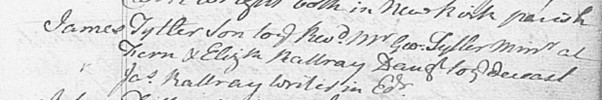 both in New Kirk parish
James Tytler Son to ye Revd. Mr. Geo: Tytler Minr. at
Fern & Elizth Rattray Daugr to ye deceast
Jas. Rattray Writer in Edr.